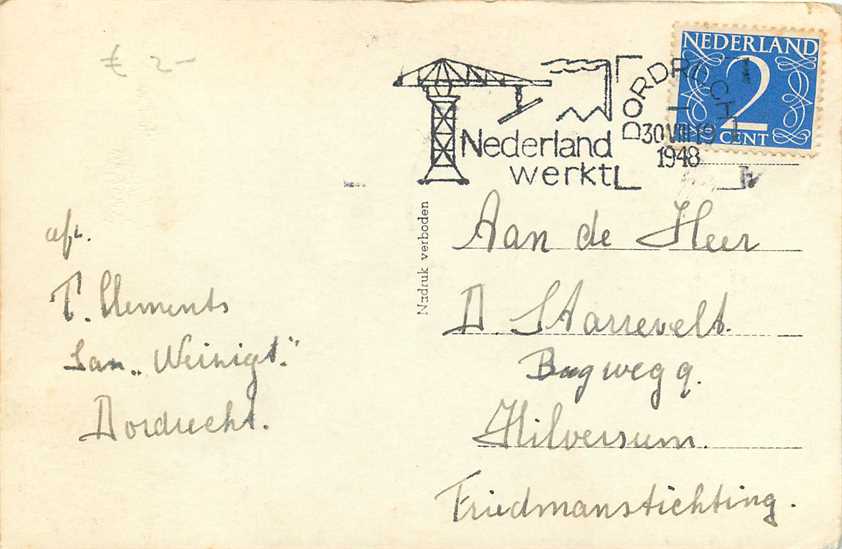 € 2-
Nederland
werkt
DORDRECHT
30 VIII 19
1948
NEDERLAND
2
CENT
Nadruk verboden
afz.
T. Clements
San „Weizigt."
Dordrecht.
Aan de Heer
D Starrevelt.
weg 9.
Hilversum.
Friedmanstichting.